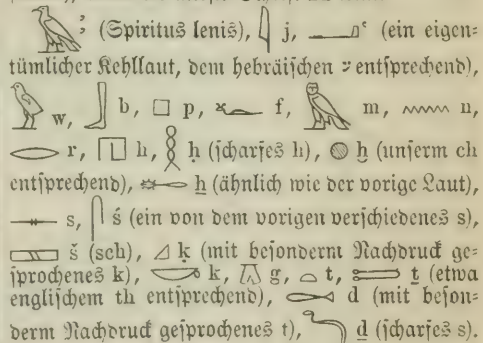 𓄿 ꜣ (Spiritus lenis), 𓇋 j, 𓂝 ꜥ (ein eigen=
tümlicher Kehllaut, dem hebräischen ע entsprechend),
𓅱 w, 𓃀 b, 𓊪 p, 𓆑 f, 𓅓 m, 𓈖 n,
𓂋 r, 𓉔 h, 𓎛 ḥ (scharfes h), 𓐍 ḫ (unserm ch
entsprechend), 𓄡 ẖ (ähnlich wie der vorige Laut),
𓊃 s, 𓋴 ś (ein von dem vorigen verschiedenes s),
𓈙 š (sch), 𓈎 ḳ (mit besonderm Nachdruck ge=
sprochenes k), 𓎡 k, 𓎼 g, 𓏏 t, 𓍿 ṯ (etwa
englischem th entsprechend), 𓂧 d (mit beson=
derm Nachdruck gesprochenes t), 𓆓 ḏ (scharfes s).